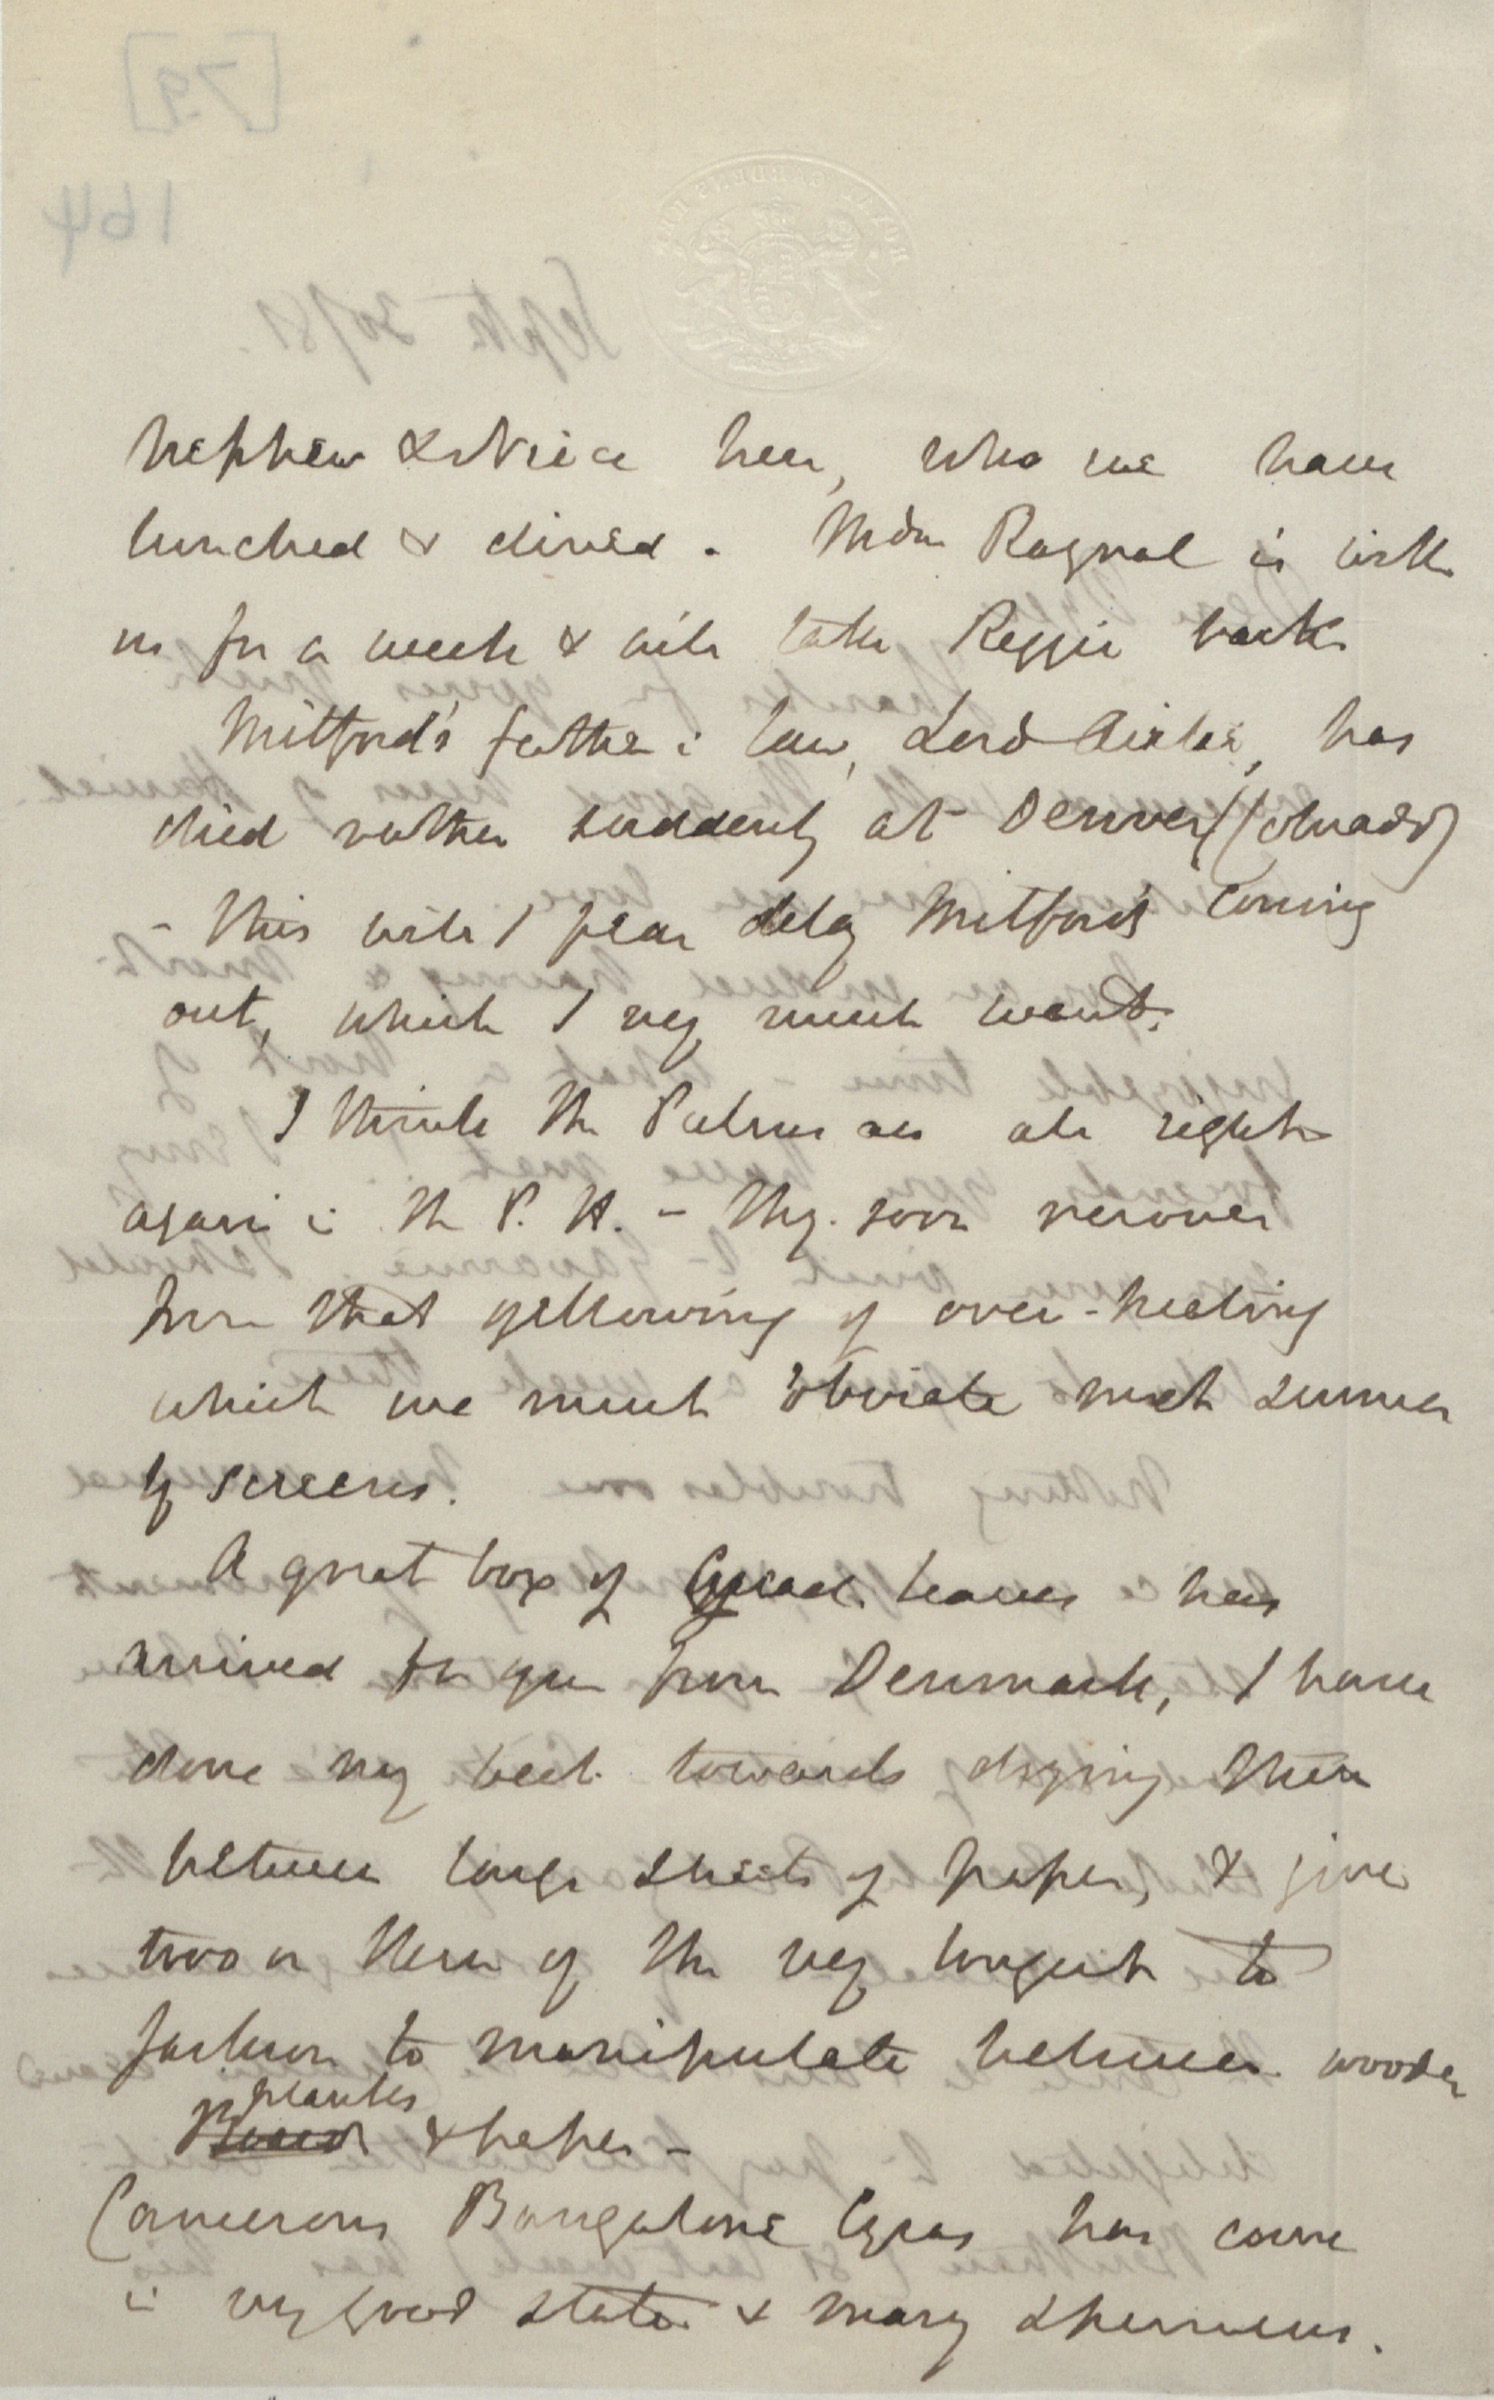 nephew & Niece here, who we have
lunched & dined. Mdm Raynal is with
us for a week & will take Reggie back
Mitford's father i law, Lord Airlie, has
died rather suddenly at Denver (Colorado)
- this will I fear delay Mitford's coming
out, which I very much want.
I think the Palms are all right
again i the P. H. - They soon recover
from that yellowing of over-heating
which we must obviate next summer
by screens.
A great box of Cycad. leaves has
arrived for you from Denmark, I have
done my best towards drying them
between large sheets of paper, & give
two or three of the very longest to
Jackson to manipulate between wooden
planks & paper -
Camerons Bangalore Cycas has come
i very good state & many specimens.